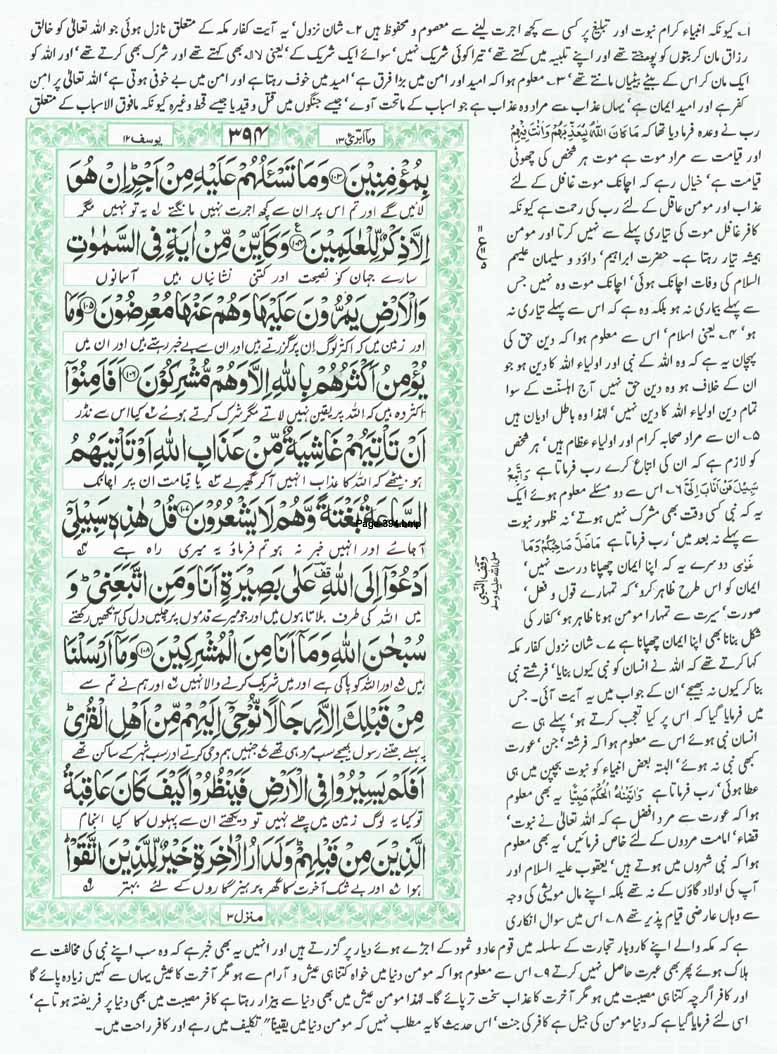 ۱؎ کیونکہ انبیاء کرام نبوت اور تبلیغ پر کسی سے کچھ اجرت لینے سے معصوم و محفوظ ہیں ۲؎ شان نزول' یہ آیت کفار مکہ کے متعلق نازل ہوئی جو اللہ تعالیٰ کو خالق
رزاق مان کر بتوں کو پوجتے تھے اور اپنے تلبیہ میں کہتے تھے' تیرا کوئی شریک نہیں' سوائے ایک شریک کے' یعنی لا لہ بھی کہتے تھے اور شرک بھی کرتے تھے' اور اللہ کو
ایک مان کر اس کے بیٹے بیٹیاں مانتے تھے' ۳؎ معلوم ہوا کہ امید اور امن میں بڑا فرق ہے' امید میں خوف رہتا ہے اور امن میں بے خوفی ہوتی ہے' اللہ تعالیٰ پر امن
کفر ہے اور امید ایمان ہے' یہاں عذاب سے مراد وہ عذاب ہے جو اسباب کے ماتحت آوے' جیسے جنگوں میں قتل و قید یا جیسے قحط وغیرہ کیونکہ مافوق الاسباب کے متعلق
وما ابرئ ۱۳
۳۹۴
یوسف ۱۲
بِمُؤْمِنِيْنَ ۝۱۰۳ وَمَا تَسْـَٔلُهُمْ عَلَيْهِ مِنْ اَجْرٍ اِنْ هُوَ
لائیں گے اور تم اس پر ان سے کچھ اجرت نہیں مانگتے ۱؎ یہ تو نہیں مگر
اِلَّا ذِكْرٌ لِّلْعٰلَمِيْنَ ۝۱۰۴ وَكَاَيِّنْ مِّنْ اٰيَةٍ فِى السَّمٰوٰتِ
سارے جہان کو نصیحت اور کتنی نشانیاں ہیں آسمانوں
وَالْاَرْضِ يَمُرُّوْنَ عَلَيْهَا وَهُمْ عَنْهَا مُعْرِضُوْنَ ۝۱۰۵ وَمَا
اور زمین میں کہ اکثر لوگ ان پر گزرتے ہیں اور ان سے بے خبر رہتے ہیں اور ان میں
يُؤْمِنُ اَكْثَرُهُمْ بِاللّٰهِ اِلَّا وَهُمْ مُّشْرِكُوْنَ ۝۱۰۶ اَفَاَمِنُوْٓا
اکثر وہ ہیں کہ اللہ پر یقین نہیں لاتے مگر شرک کرتے ہوئے ۲؎ کیا اس سے نڈر
اَنْ تَاْتِيَهُمْ غَاشِيَةٌ مِّنْ عَذَابِ اللّٰهِ اَوْ تَاْتِيَهُمُ
ہو بیٹھے کہ اللہ کا عذاب انہیں آ کر گھیر لے ۳؎ یا قیامت ان پر اچانک
السَّاعَةُ بَغْتَةً وَّهُمْ لَا يَشْعُرُوْنَ ۝۱۰۷ قُلْ هٰذِهٖ سَبِيْلِىْٓ
Page 394.bmp
آ جائے اور انہیں خبر نہ ہو تم فرماؤ یہ میری راہ ہے ۴؎
اَدْعُوْٓا اِلَى اللّٰهِ ࣞ عَلٰى بَصِيْرَةٍ اَنَا وَمَنِ اتَّبَعَنِىْ ؕ وَ
میں اللہ کی طرف بلاتا ہوں میں اور جو میرے قدموں پر چلیں دل کی آنکھیں رکھتے
سُبْحٰنَ اللّٰهِ وَمَآ اَنَا مِنَ الْمُشْرِكِيْنَ ۝۱۰۸ وَمَآ اَرْسَلْنَا
ہیں ۵؎ اور اللہ کو پاکی ہے اور میں شریک کرنے والا نہیں ۶؎ اور ہم نے تم سے
مِنْ قَبْلِكَ اِلَّا رِجَالًا نُّوْحِىْٓ اِلَيْهِمْ مِّنْ اَهْلِ الْقُرٰى ؕ
پہلے جتنے رسول بھیجے سب مرد ہی تھے ۷؎ جنہیں ہم وحی کرتے اور سب شہر کے ساکن تھے
اَفَلَمْ يَسِيْرُوْا فِى الْاَرْضِ فَيَنْظُرُوْا كَيْفَ كَانَ عَاقِبَةُ
تو کیا یہ لوگ زمین میں چلے نہیں تو دیکھتے ان سے پہلوں کا کیا انجام
الَّذِيْنَ مِنْ قَبْلِهِمْ ؕ وَلَدَارُ الْاٰخِرَةِ خَيْرٌ لِّلَّذِيْنَ اتَّقَوْا ؕ
ہوا ۸؎ اور بے شک آخرت کا گھر پرہیزگاروں کے لئے بہتر ۹؎
منزل ۳
وقف النبی
صلی اللہ علیہ وسلم
رب نے وعدہ فرما دیا تھا کہ مَا كَانَ اللّٰهُ لِيُعَذِّبَهُمْ وَاَنْتَ فِيْهِمْ
اور قیامت سے مراد موت ہے موت ہر شخص کی چھوٹی
قیامت ہے' خیال رہے کہ اچانک موت غافل کے لئے
عذاب اور مومن عاقل کے لئے رب کی رحمت ہے کیونکہ
کافر غافل موت کی تیاری پہلے سے نہیں کرتا اور مومن
ہمیشہ تیار رہتا ہے۔ حضرت ابراہیم' داؤد و سلیمان علیہم
السلام کی وفات اچانک ہوئی' اچانک موت وہ نہیں جس
سے پہلے بیماری نہ ہو بلکہ وہ ہے کہ اس سے پہلے تیاری نہ
ہو' ۴؎ یعنی اسلام' اس سے معلوم ہوا کہ دین حق کی
پہچان یہ ہے کہ وہ اللہ کے نبی اور اولیاء اللہ کا دین ہو جو
ان کے خلاف ہو وہ دین حق نہیں آج اہلسنّت کے سوا
تمام دین اولیاء اللہ کا دین نہیں' لہٰذا وہ باطل ادیان ہیں
۵؎ ان سے مراد صحابہ کرام اور اولیاء عظام ہیں' ہر شخص
کو لازم ہے کہ ان کی اتباع کرے رب فرماتا ہے وَاتَّبِعْ
سَبِيْلَ مَنْ اَنَابَ اِلَىَّ ۶؎ اس سے دو مسئلے معلوم ہوئے ایک
یہ کہ نبی کسی وقت بھی مشرک نہیں ہوتے' نہ ظہور نبوت
سے پہلے نہ بعد میں' رب فرماتا ہے مَا ضَلَّ صَاحِبُكُمْ وَمَا
غَوٰى دوسرے یہ کہ اپنا ایمان چھپانا درست نہیں'
ایمان کو اس طرح ظاہر کرو' کہ تمہارے قول و فعل'
صورت' سیرت سے تمہارا مومن ہونا ظاہر ہو' کفار کی
شکل بنانا بھی اپنا ایمان چھپانا ہے ۷؎ شان نزول کفار مکہ
کہا کرتے تھے کہ اللہ نے انسان کو نبی کیوں بنایا' فرشتے نبی
بنا کر کیوں نہ بھیجے' ان کے جواب میں یہ آیت آئی۔ جس
میں فرمایا گیا کہ اس پر کیا تعجب کرتے ہو' پہلے ہی سے
انسان نبی ہوئے اس سے معلوم ہوا کہ فرشتہ' جن' عورت
کبھی نبی نہ ہوئے' البتہ بعض انبیاء کو نبوت بچپن میں ہی
عطا ہوئی' رب فرماتا ہے وَاٰتَيْنٰهُ الْحُكْمَ صَبِيًّا یہ بھی معلوم
ہوا کہ عورت سے مرد افضل ہے کہ اللہ تعالیٰ نے نبوت'
قضاء' امامت مردوں کے لئے خاص فرمائیں' یہ بھی معلوم
ہوا کہ نبی شہروں میں ہوتے ہیں' یعقوب علیہ السلام اور
آپ کی اولاد گاؤں کے نہ تھے بلکہ اپنے مال مویشی کی وجہ
سے وہاں عارضی قیام پذیر تھے ۸؎ اس میں سوال انکاری
ہے کہ مکہ والے اپنے کاروبار تجارت کے سلسلہ میں قوم عاد و ثمود کے اجڑے ہوئے دیار پر گزرتے ہیں اور انہیں یہ بھی خبر ہے کہ وہ سب اپنے نبی کی مخالفت سے
ہلاک ہوئے پھر بھی عبرت حاصل نہیں کرتے ۹؎ اس سے معلوم ہوا کہ مومن دنیا میں خواہ کتنا ہی عیش و آرام سے ہو مگر آخرت کا عیش یہاں سے کہیں زیادہ پائے گا
اور کافر اگرچہ کتنا ہی مصیبت میں ہو مگر آخرت کا عذاب سخت تر پائے گا۔ لہٰذا مومن عیش میں بھی دنیا سے بیزار رہتا ہے کافر مصیبت میں بھی دنیا پر فریفتہ ہوتا ہے'
اسی لئے فرمایا گیا ہے کہ دنیا مومن کی جیل ہے کافر کی جنت' اس حدیث کا یہ مطلب نہیں کہ مومن دنیا میں یقیناً" تکلیف میں رہے اور کافر راحت میں۔